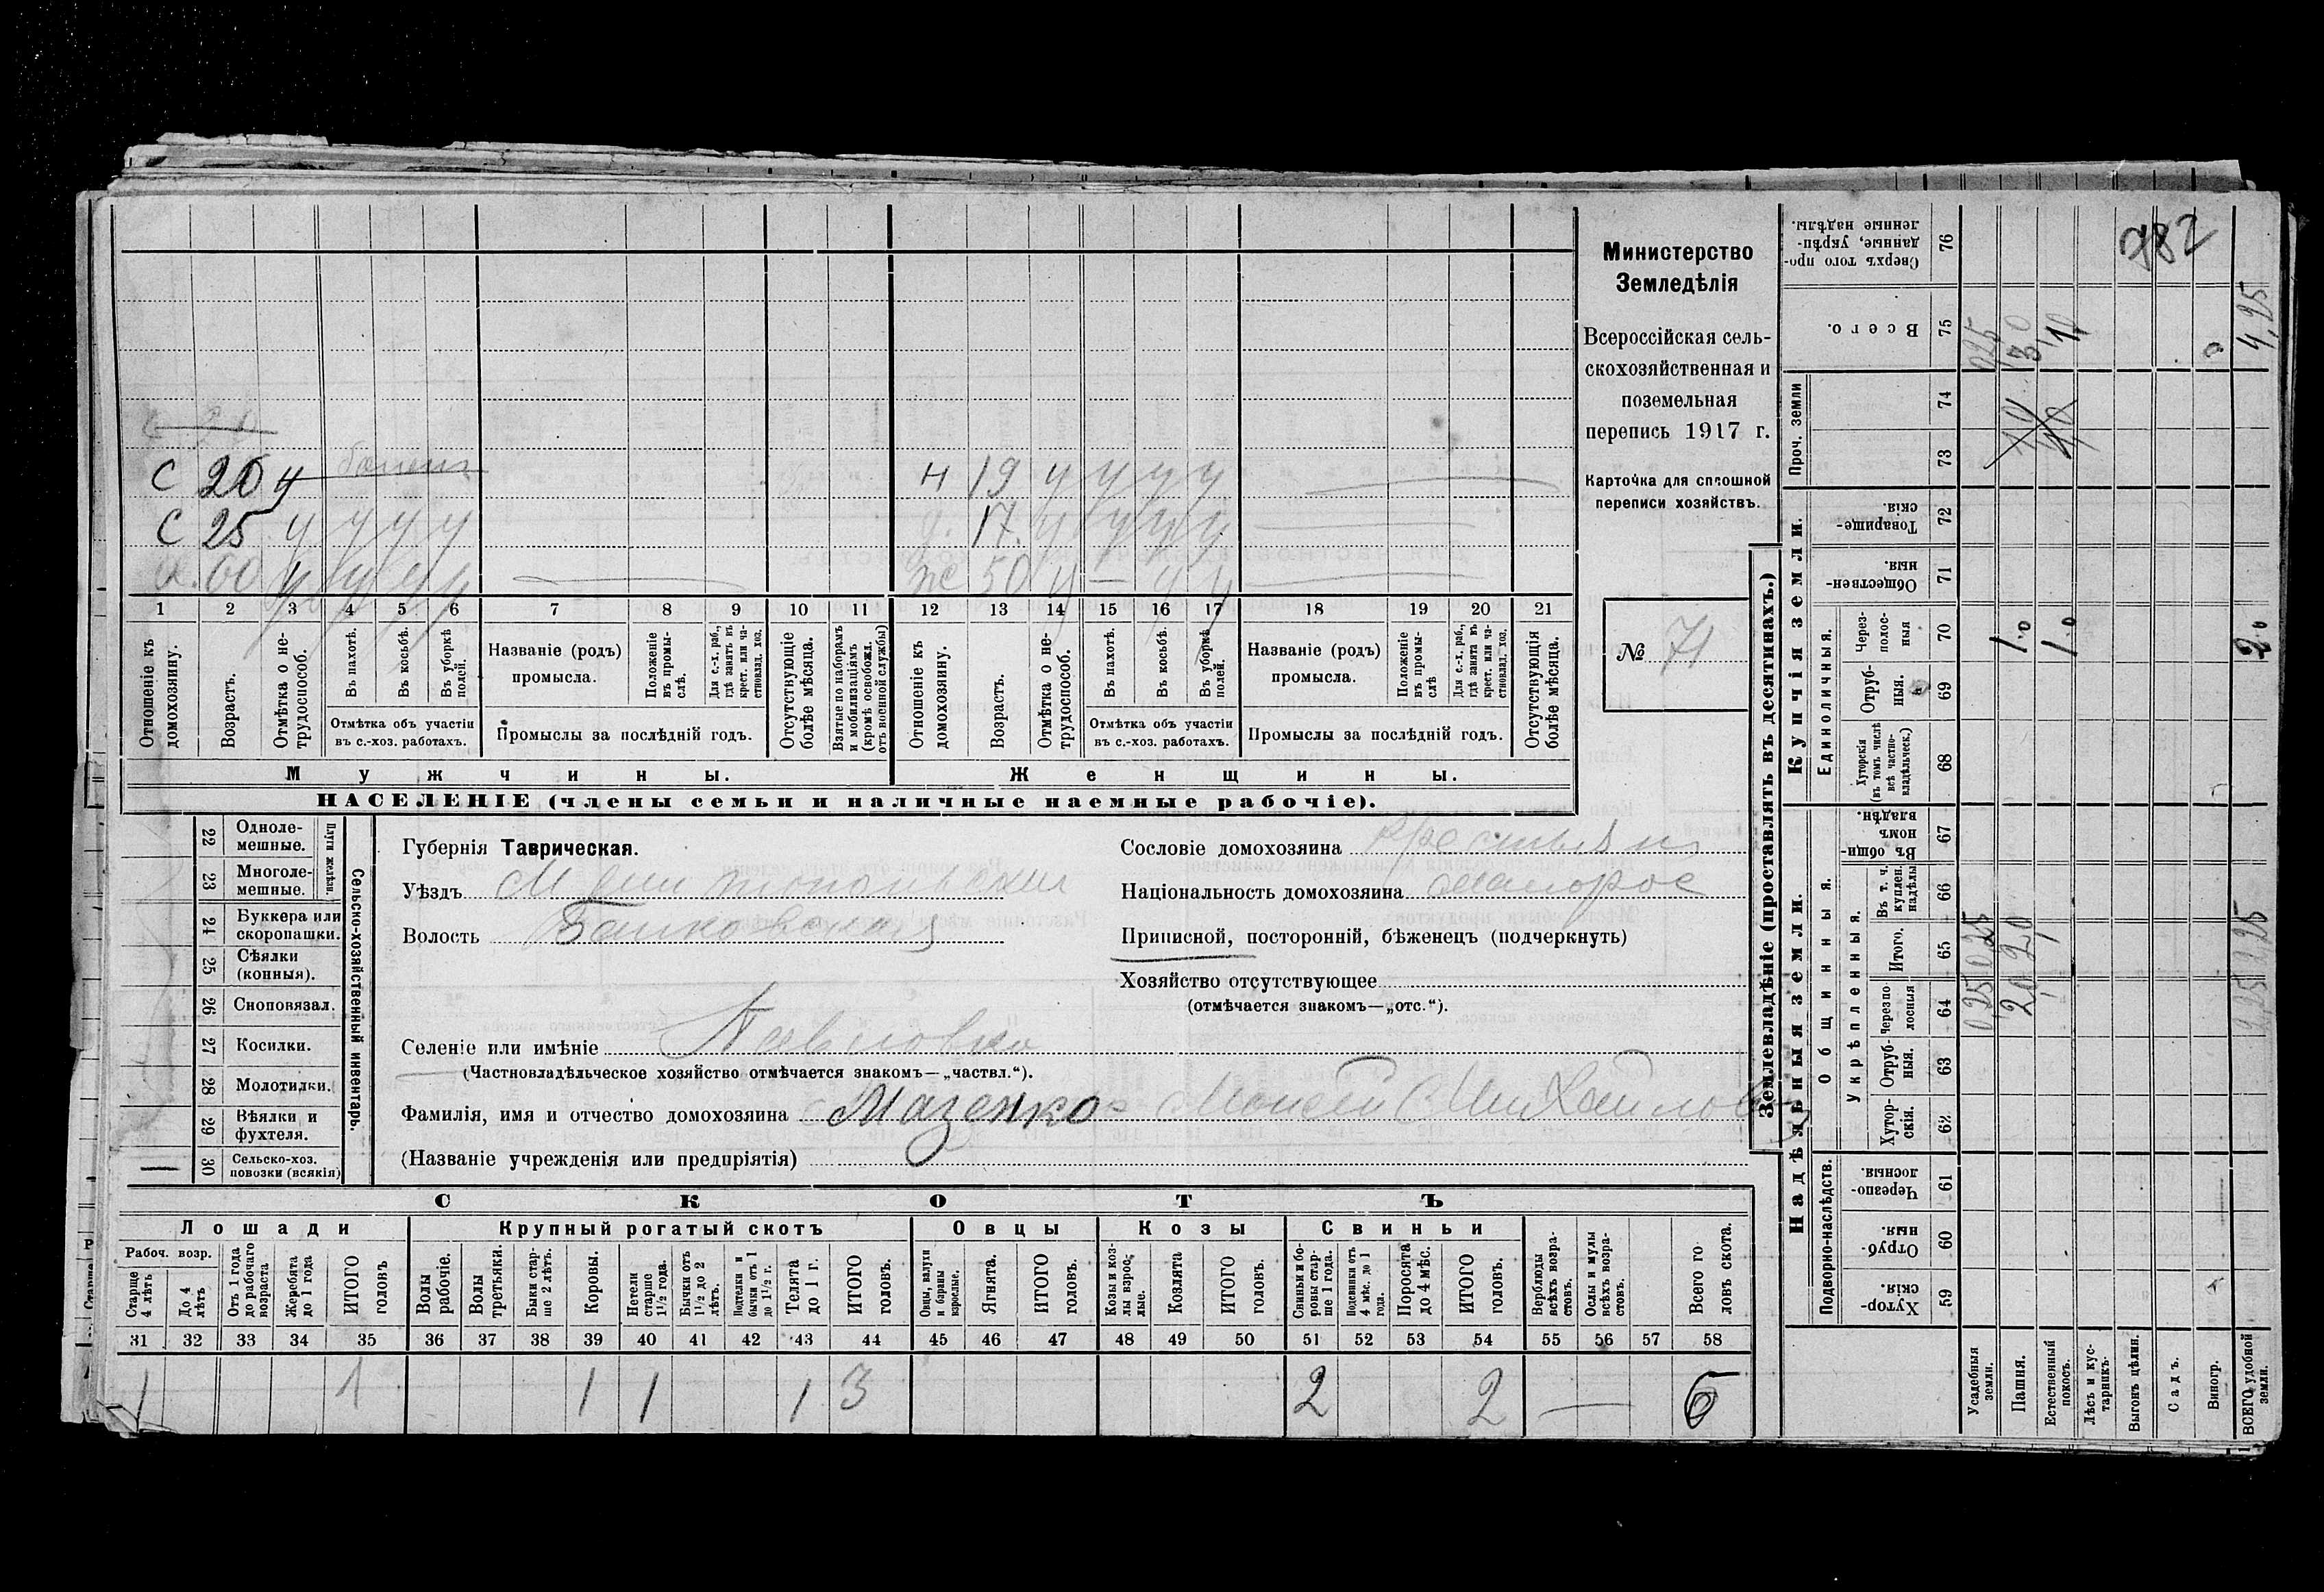 982
Министерство
Земледѣлія
Всероссійская сель-
скохозяйственная и
поземельная
перепись 1917 г.
Карточка для сплошной
переписи хозяйствъ.
№ 71
С 20 у
Н 19 у у у у
С 25 у у у у
17 у у у у
60 у у у у
ж 50 у — у у
1 2 3 4 5 6 7 8 9 10 11 12 13 14 15 16 17 18 19 20 21
Отношеніе къ домохозяину.
Возрастъ.
Отмѣтка о не-трудоспособ.
Въ пахотѣ.
Въ косьбѣ.
Въ уборкѣ полей.
Отмѣтка объ участіи въ с.-хоз. работахъ.
Названіе (родъ) промысла.
Положеніе въ промы-слѣ.
Для с.-х. раб., гдѣ занятъ въ крест. или ча-стновлад. хоз.
Промыслы за послѣдній годъ.
Отсутствующіе болѣе мѣсяца.
Взятые по наборамъ и мобилизаціямъ (кромѣ освобожд. отъ военной службы)
Отношеніе къ домохозяину.
Возрастъ.
Отмѣтка о не-трудоспособ.
Въ пахотѣ.
Въ косьбѣ.
Въ уборкѣ полей.
Отмѣтка объ участіи въ с.-хоз. работахъ.
Названіе (родъ) промысла.
Положеніе въ промы-слѣ
Для с.-х. раб., гдѣ занята въ крест. или ча-стновлад. хоз.
Промыслы за послѣдній годъ.
Отсутствующія болѣе мѣсяца.
Мужчины.
Женщины.
НАСЕЛЕНІЕ (члены семьи и наличные наемные рабочіе).
22 Одноле-мешные.
23 Многоле-мешные.
Плуги желѣзн.
24 Буккера или скоропашки.
25 Сѣялки (конныя).
26 Сноповязал.
27 Косилки.
28 Молотилки.
29 Вѣялки и фухтеля.
30 Сельско-хоз. повозки (всякія)
—
Сельско-хозяйственный инвентарь.
Губернія Таврическая.
Уѣздъ Мелитопольскій
Волость
Селеніе или имѣніе Павловка
(Частновладѣльческое хозяйство отмѣчается знакомъ—„частвл.“).
Фамилія, имя и отчество домохозяина Мазенко Моисей Михайлов
(Названіе учрежденія или предпріятія)
Сословіе домохозяина крестьянин
Національность домохозяина малорос
Приписной, посторонній, бѣженецъ (подчеркнуть)
Хозяйство отсутствующее
(отмѣчается знакомъ—„отс.“).
СКОТЪ
Лошади
Крупный рогатый скотъ
Овцы
Козы
Свиньи
Рабоч. возр.
Старше 4 лѣтъ
До 4 лѣтъ
Отъ 1 года до рабочаго возраста
Жеребята до 1 года
ИТОГО головъ
Волы рабочіе.
Волы третьяки.
Быки стар-ше 2 лѣтъ.
Коровы.
Нетели старше 1½ года.
Бычки отъ 1½ до 2 лѣтъ.
Подтелки и бычки отъ 1 до 1½ г.
Телята до 1 г.
ИТОГО головъ.
Овцы, валухи и бараны взрослые.
Ягнята.
ИТОГО головъ.
Козы и коз-лы взрос-лые.
Козлята
ИТОГО головъ.
Свиньи и бо-ровы стар-ше 1 года.
Подсвинки отъ 4 мѣс. до 1 года.
Поросята до 4 мѣс.
ИТОГО головъ.
Верблюды всѣхъ возра-стовъ.
Ослы и мулы всѣхъ возра-стовъ.
Всего го ловъ скота.
31 32 33 34 35 36 37 38 39 40 41 42 43 44 45 46 47 48 49 50 51 52 53 54 55 56 57 58
1 1 1 1 1 3 2 2 — 6
Землевладѣніе (проставлять въ десятинахъ.)
Надѣльныя земли.
Купчія земли.
Проч. земли
Подворно-наслѣдств.
Общинныя.
Укрѣпленныя.
Единоличныя.
Хутор-скія. 59
Отруб-ныя. 60
Черезпо-лосныя. 61
Хутор-скія. 62
Отруб-ныя. 63
Черезпо-лосныя 64
Итого. 65
Въ т. ч. куплен. надѣлы 66
Въ общи-номъ владѣн. 67
Хуторскія (въ томъ числѣ всѣ частно-владѣльческ.) 68
Отруб-ныя. 69
Через-полос-ныя 70
Обществен-ныя. 71
Товарище-скія. 72
73
74
Всего. 75
Сверхъ того про-данные, укрѣп-ленные надѣлы. 76
Усадебныя земли. 0,25 0,25 025
Пашня. 2,0 2,0 1.0 3,0
Естественный покосъ. 1.0 1,0
Лѣсъ и кус-тарникъ.
Выгонъ цѣлин.
Садъ.
Виногр.
ВСЕГО удобной земли. 2,25 2,25 2.0 4,25